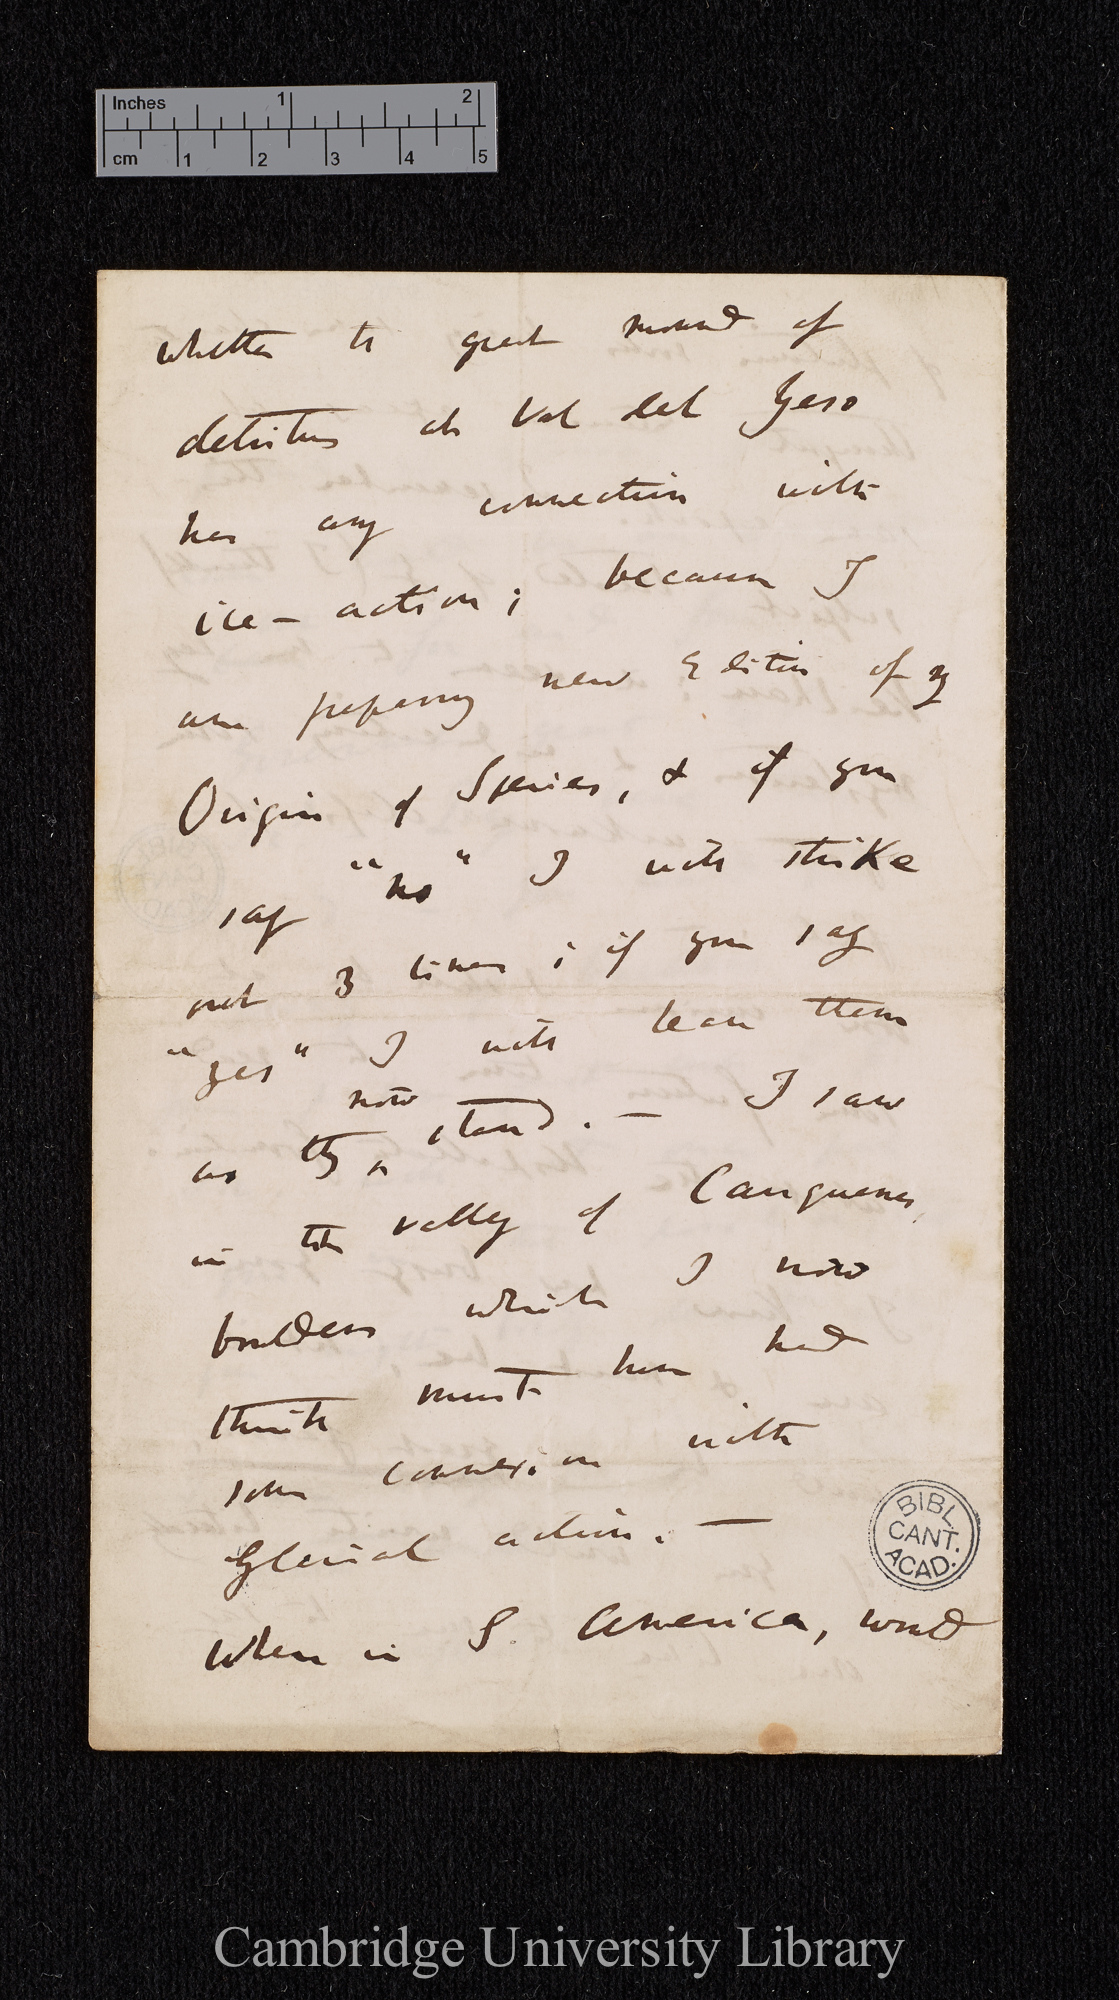 Inches 1 2
cm 1 2 3 4 5
whether the great mound of
detritus at Val del Yeso
has any connection with
ice-action; because I
am preparing new Edition of my
Origin of Species, & if you
say "no" I will strike
out 3 lines; if you say
"yes" I will leave them
as they now stand.— I saw
in the valley of Cauquenes,
boulders which I now
think must have had
some connexion with
Glacial action.—
When in S. America, would
BIBL.
CANT.
ACAD.
Cambridge University Library